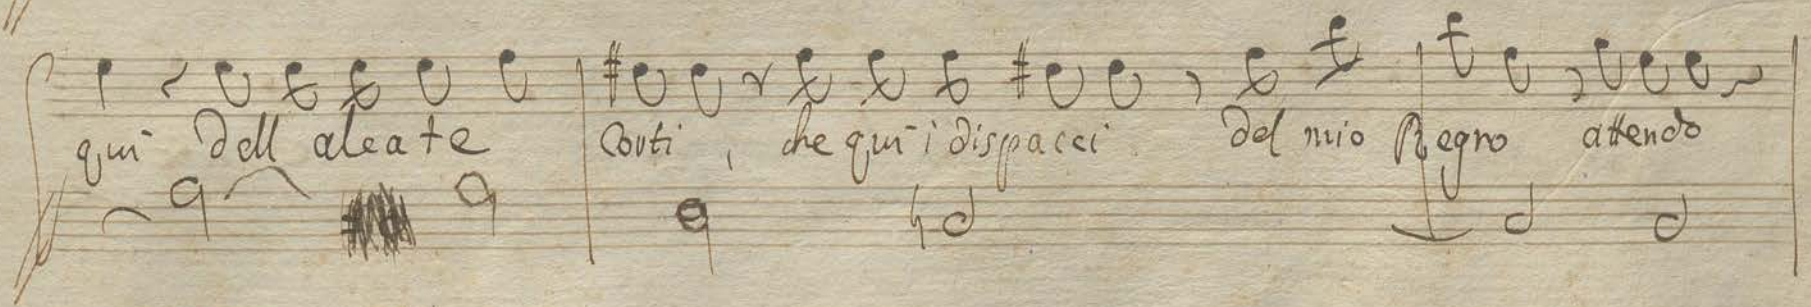 qui dell alea te Corti, che qui i dispacci del mio Regno attendo